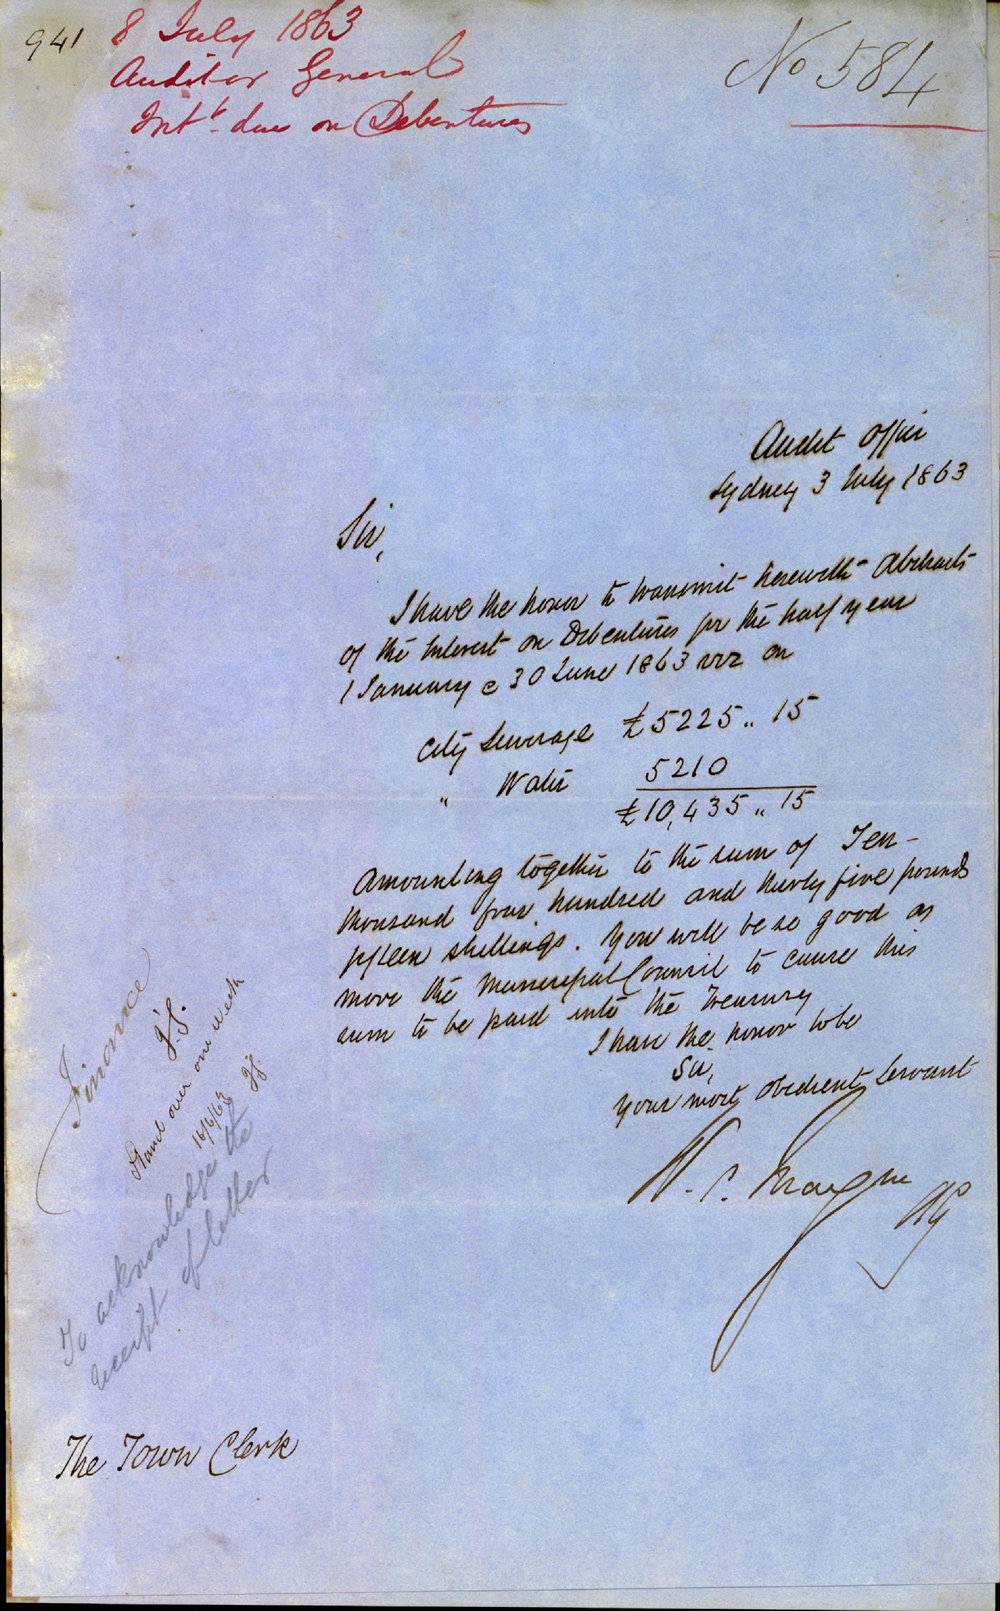 941
8 July 1863
Auditor General
Intt. due on Debentures
No 584
Audit Office
Sydney 3 July 1863
Sir,
I have the honor to transmit herewith Abstracts
of the Interest on Debentures for the half year
1 January @ 30 June 1863 viz on
City Sewerage £5225 .. 15
" Water 5210
£10,435 .. 15
Amounting together to the sum of Ten
thousand four hundred and thirty five pounds
fifteen shillings. You will be so good as
move the Municipal Council to cause this
sum to be paid into the Treasury
I have the honor to be
Sir,
Your most obedient Servant
W. C.
AG
Finance
J.S.
Stand over one week
16/6/63
To acknowledge the
receipt of letter
The Town Clerk